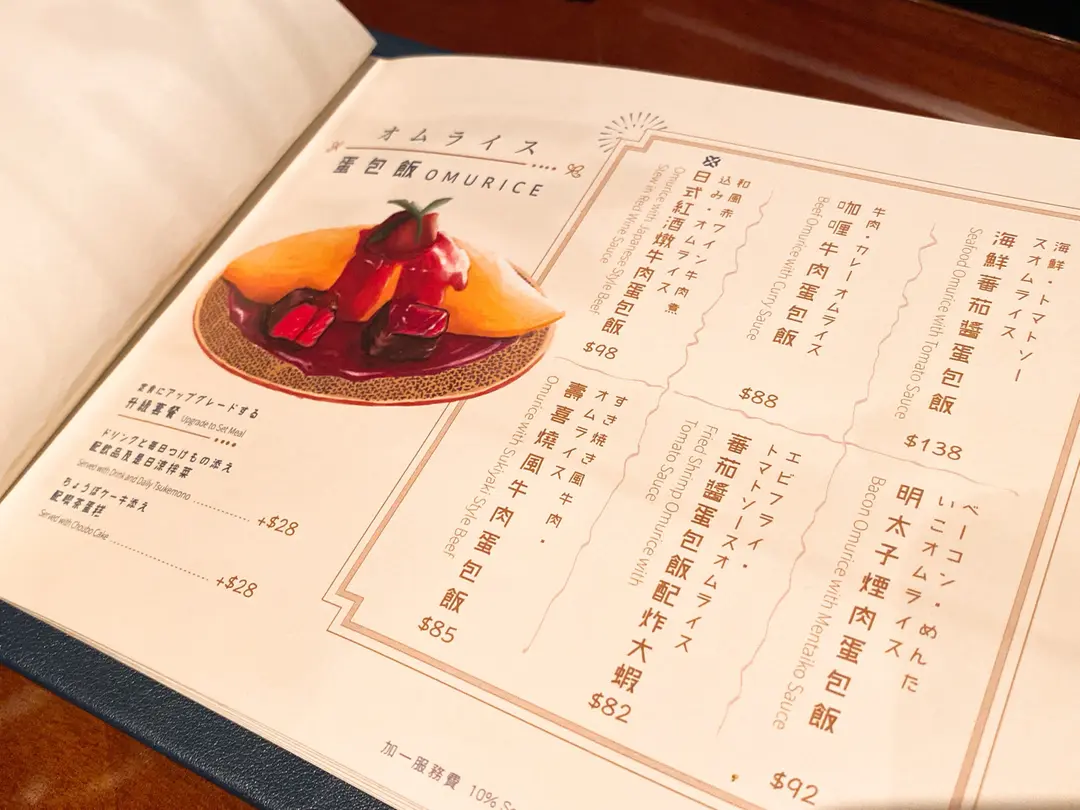 オムライス
蛋包飯 OMURICE
定食にアップグレードする
升級套餐 Upgrade to Set Meal
ドリンクと毎日つけもの添え
配飲品及是日涼拌菜
Served with Drink and Daily Tsukemono
+$28
ちょうぼケーキ添え
配喫茶蛋糕
Served with Choobo Cake
+$28
海鮮・トマトソー
スオムライス
海鮮蕃茄醬蛋包飯
Seafood Omurice with Tomato Sauce
$138
牛肉・カレーオムライス
咖喱牛肉蛋包飯
Beef Omurice with Curry Sauce
$88
和風赤ワイン牛肉煮
込み・オムライス
日式紅酒燉牛肉蛋包飯
Omurice with Japanese Style Beef
Stew in Red Wine Sauce
$98
ベーコン・めんた
いこオムライス
明太子煙肉蛋包飯
Bacon Omurice with Mentaiko Sauce
$92
エビフライ・
トマトソースオムライス
蕃茄醬蛋包飯配炸大蝦
Fried Shrimp Omurice with
Tomato Sauce
$82
すき焼き風牛肉・
オムライス
壽喜燒風牛肉蛋包飯
Omurice with Sukiyaki Style Beef
$85
加一服務費 10%